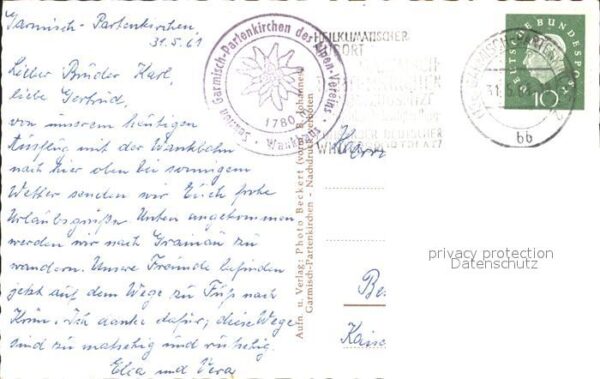 Garmisch-Partenkirchen
31.5.61
Lieber Bruder Karl,
liebe Gertrud,
von unserem heutigen
Ausflug mit der Wankbahn
nach hier oben bei sonnigem
Wetter senden wir Euch frohe
Urlaubsgrüße. Unten angekommen
werden wir nach Grainau zu
wandern. Unsere Freunde befinden
jetzt auf dem Wege zu Fuß nach
Krün. Ich danke dafür, diese Wege
sind zu matschig und rutschig.
und Vera
Section Garmisch-Partenkirchen des Alpen-Vereins
1780 m
Wankhaus
HEILKLIMATISCHER
KURORT
31.5.61
bb
DEUTSCHE BUNDESPOST
10
Aufn u. Verlag: Photo Beckert (vorm. B. Johannes)
Garmisch-Partenkirchen - Nachdruck verboten
privacy protection
Datenschutz